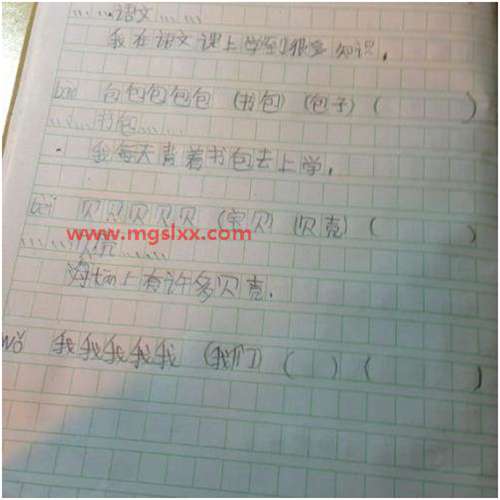 ……语文……
我在语文课上学到很多知识。
bāo 包包包包包 (书包) (包子) ( )
……书包……
我每天背着书包去上学。
bèi 贝贝贝贝贝 (宝贝) (贝克) ( )
www.mgslxx.com
海滩上有许多贝克.
wǒ 我我我我我 (我们) ( ) ( )